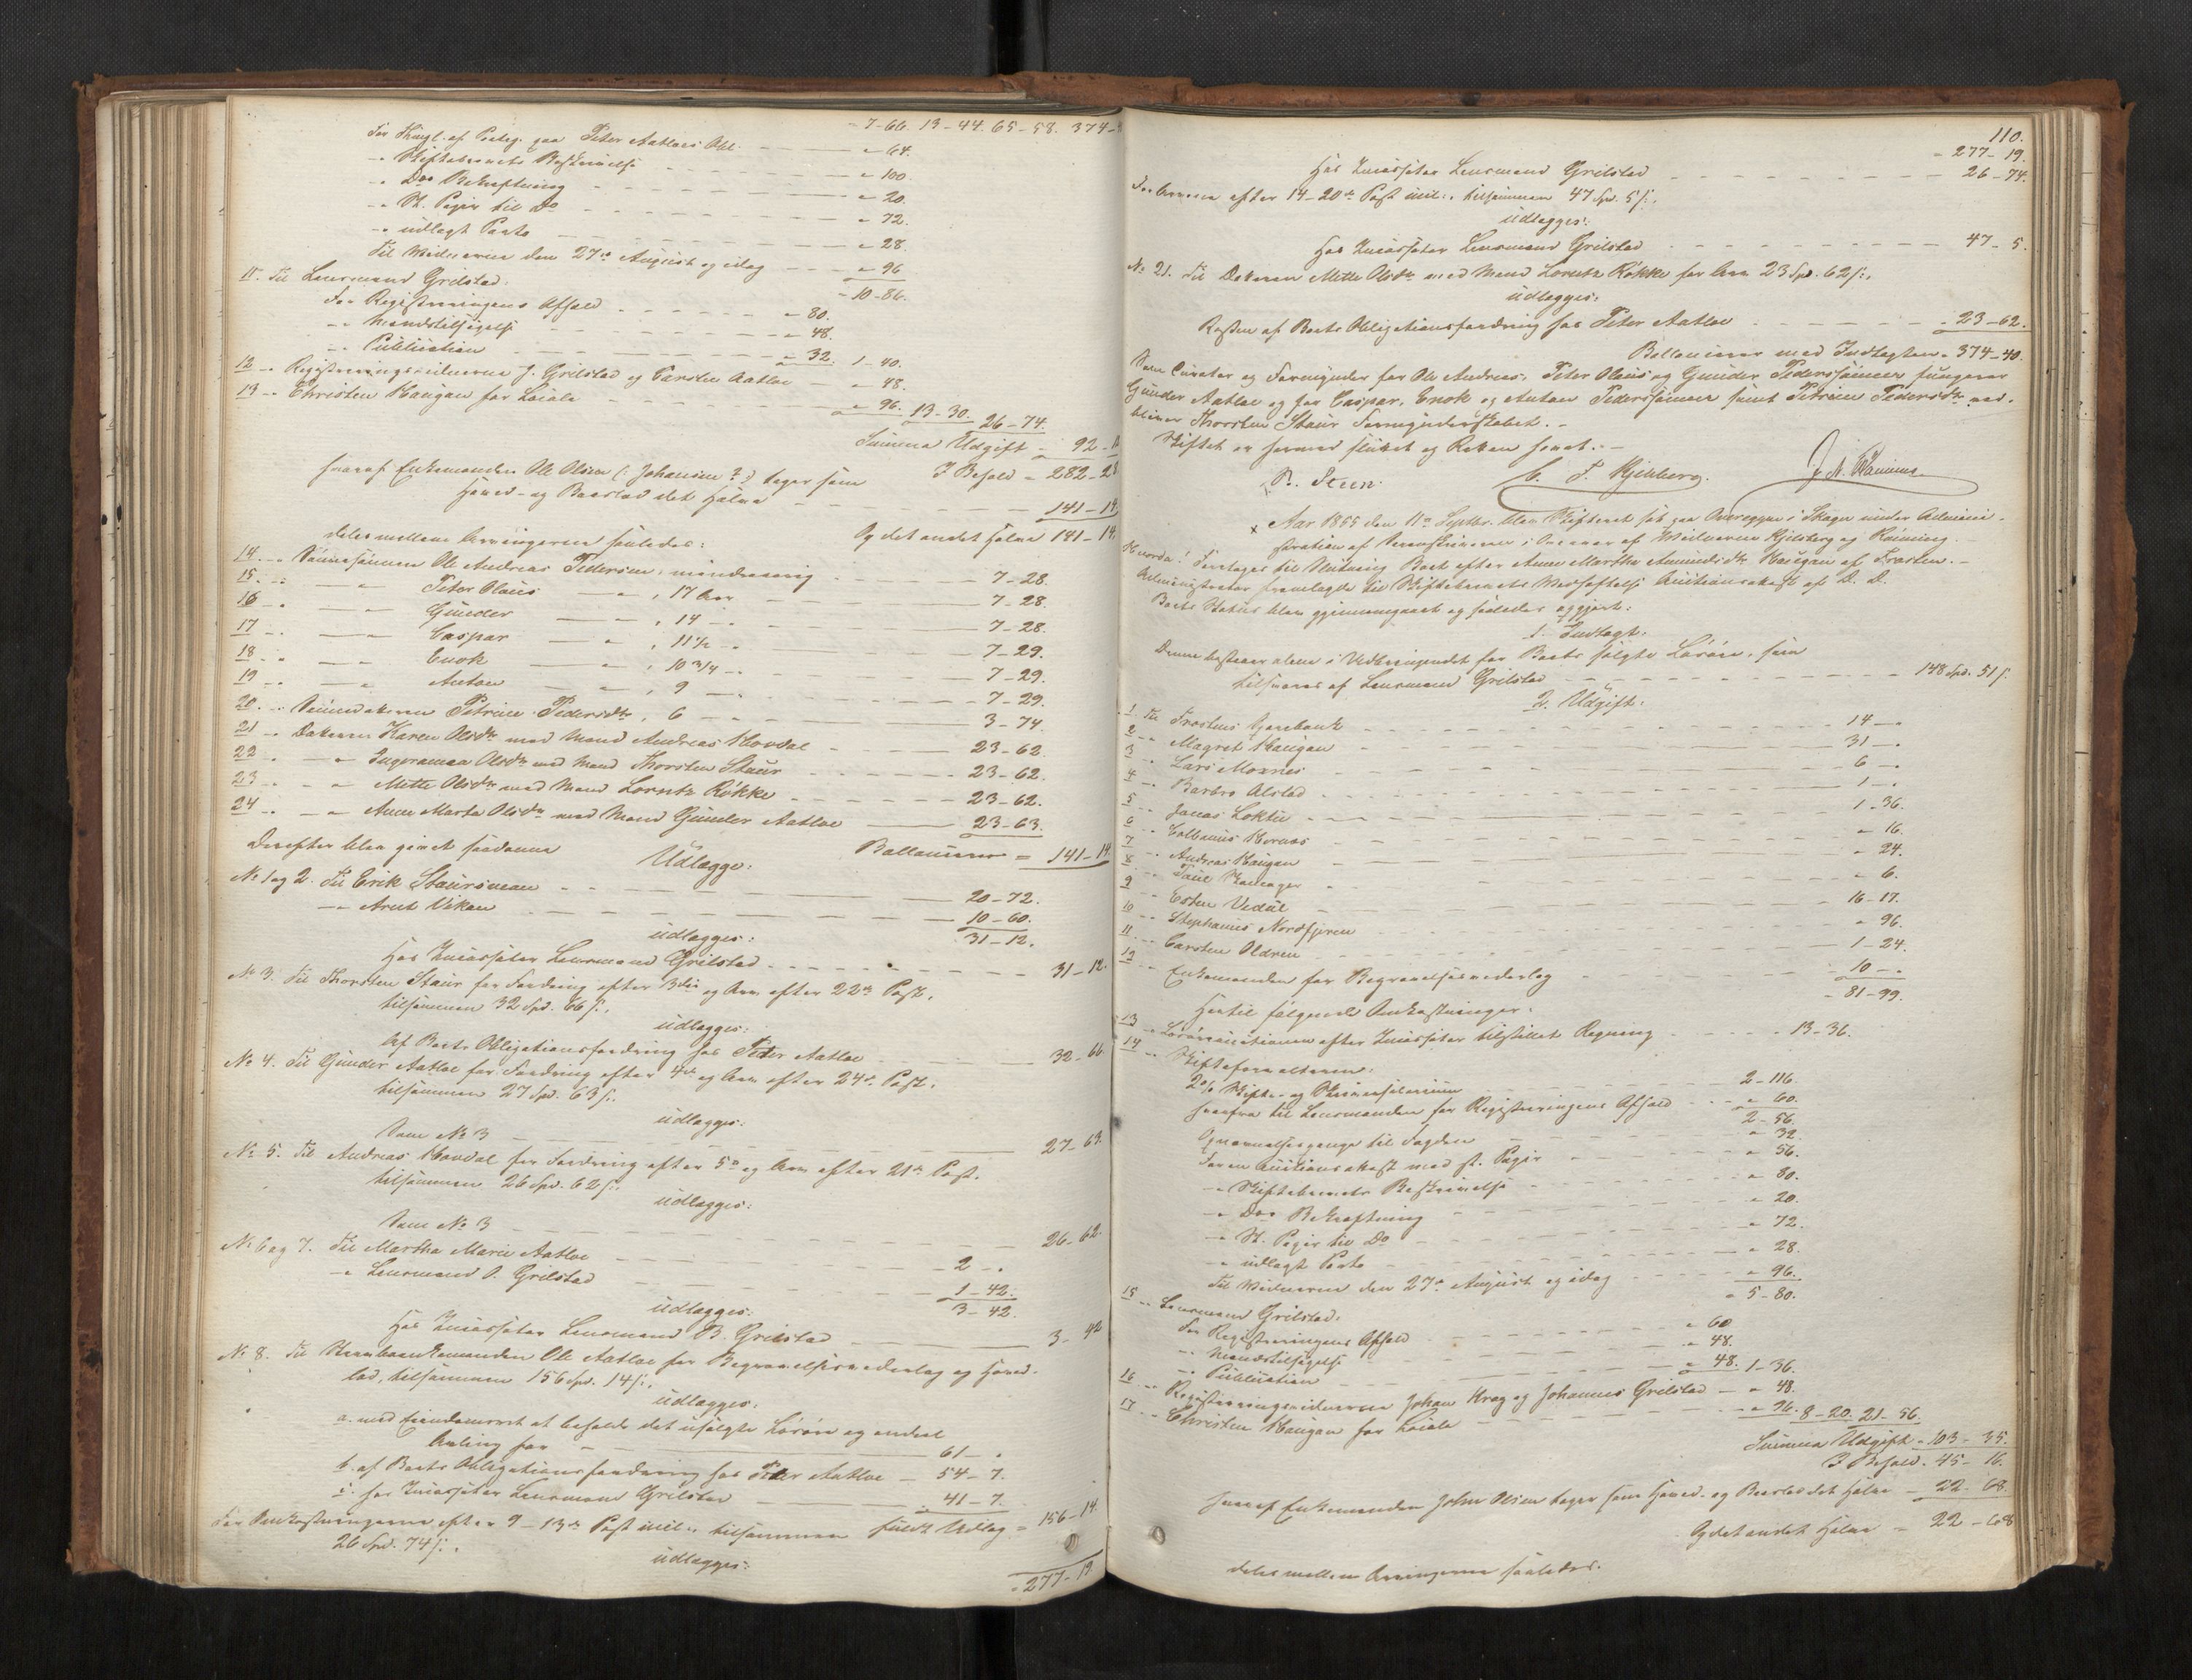 7-66. 13-44. 65-58. 374-
For Thingl. af Paateg. paa Peter Aatloes Obl. " 64.
" Skiftebrevets Beskrivelse " 100
" Do Bekræftning " 20.
" St. Papir til Do " 72.
" udlagt Porto " 28.
Til Vidnerne den 27de August og idag " 96
10-86.
11. Til Lensmand Grilstad.
For Registreringens Afhold " 80.
" Mandstilsigelse " 48.
" Publication " 32. 1-40.
12 " Registreringsvidnerne J. Grilstad og Carsten Aatloe " 48.
13 " Christen Haugan for Locale " 96. 13-30. 26-74.
Summa Udgift 92-
I Behold 282-28
hvoraf Enkemanden Ole Olsen (: Johansen ? :) tager som
Hoved- og Boeslod det halve 141-14.
Og det andet halve 141-14.
deles mellem Arvingerne saaledes:
14 " Sønnesønnen Ole Andreas Pedersen, mindreaarig 7-28.
15 " " Peter Olaus " , 17 Aar 7-28.
16 " " Gunder " , 14 " 7-28.
17 " " Caspar " , 11 1/2 " 7-29.
18 " " Enok " , 10 3/4 " 7-29.
19 " " Anton " , 9 " 7-29.
20 " Sønnedatteren Petrine Pedersdtr, 6 " 3-74.
21 " Datteren Karen Olsdtr med Mand Andreas Hovdal 23-62.
22 " " Ingeranna Olsdtr med Mand Thorsten Staur 23-62.
23 " " Mette Olsdtr med Mand Lorntz Røkke 23-62.
24 " " Anne Marta Olsdtr med Mand Gunder Aatloe 23-63.
Ballancerer 141-14.
Derefter blev givet saadanne
Udlægge:
No 1 og 2. Til Erik Staursmoen 20-72.
" Arnt Viken 10-60.
31-12.
udlægges:
Hos Incassator Lensmand Grilstad 31-12.
No 3. Til Thorsten Staur for Fordring efter 3die og Arv efter 22de Post,
tilsammen 32 Spd. 66 s.,
udlægges:
Af Boets Obligationsfordring hos Peter Aatloe 32-66
No 4. Til Gunder Aatloe for Fordring efter 4de og Arv efter 24de Post,
tilsammen 27 Spd. 63 s.,
udlægges:
Som No 3 27-63.
No 5. Til Andreas Hovdal for Fordring efter 5te og Arv efter 21de Post,
tilsammen 26 Spd. 62 s.,
udlægges:
Som No 3 26-62.
No 6 og 7. Til Martha Marie Aatloe 2 - "
" Lensmand B. Grilstad 1-42.
3-42.
udlægges:
Hos Incassator Lensmand B. Grilstad 3-42
No 8. Til Enkemanden Ole Aatloe for Begravelsesvederlag og Hoved-
lod, tilsammen 156 Spd. 14 s.,
udlægges,
a. med Eiendomsret at beholde det usolgte Løsøre og endeel
Avling for 61 - "
b. af Boets Obligationsfordring hos Peter Aatloe 54-7.
c. hos Incassator Lensmand Grilstad 41-7.
fuldt Udlæg 156-14
For Omkostningerne efter 9-13de Post incl., tilsammen
26 Spd. 74 s.,
udlægges:
277-19
110.
277-19.
Hos Incassator Lensmand Grilstad 26-74.
For Arvene efter 14-20de Post incl., tilsammen 47 Spd. 5 s.,
udlægges:
Hos Incassator Lensmand Grilstad 47-5.
No 21. Til Datteren Mette Olsdtr med Mand Lorntz Røkke for Arv 23 Spd. 62 s.,
udlægges,
Resten af Boets Obligationsfordring hos Peter Aatloe 23-62.
Ballancerer med Indtægten 374-40.
Som Curator og Formynder for Ole Andreas, Peter Olaus og Gunder Pederssønner fungerer
Gunder Aatloe og for Caspar, Enok og Anton Pederssønner samt Petrine Pedersdtr ved-
bliver Thorsten Staur Formynderskabet.
Skiftet er hermed sluttet og Retten hævet.
R. Steen. C. F. Kjelberg. J. N. Rønning
x Aar 1855 den 11te Septbr. blev Skifteret sat paa Overeggen i Skogn under Admini-
stration af Sorenskriveren i Overvær af Vidnerne Kjelberg og Rønning.
Hvorda! Foretages til Slutning Boet efter Anne Martha Amundsdtr Haugan af Frosten.
Administrator fremlagde til Skiftebrevets Vedheftelse Auctionsakt af D. D.
Boets Status blev gjennemgaaet og saaledes opgjort:
1. Indtægt.
Denne bestaaer alene i Udbringendet for Boets solgte Løsøre, som
tilsvares af Lensmand Grilstad 148 Spd. 51 s.
2. Udgift:
1. Til Frostens Sparebank 14 - "
2 " Magret Haugan 31 - "
3 " Lars Moxnes 6 - "
4 " Barbro Alstad 1 - "
5 " Jonas Loktu 1-36.
6 " " 16.
7 " Andreas Haugan " 24.
8 " Paul " 6.
9 " Esten Vedul 16-17.
10 " Stephanus Nordfjeren " 96.
11 " Carsten Oldren 1-24.
12 " Enkemanden for Begravelsesvederlag 10 - "
81-99.
Hertil følgende Omkostninger:
13 " Løsøreauctionen efter Incassator tilstillet Regning 13-36.
14 " Skifteforvalteren:
2 % Skifte- og Skriversalarium 2-116.
herfra til Lensmanden for Registreringens Afhold " 60.
2-56.
Opnævnelsespenge til Fogden " 32.
For en Auctionsakt med st. Papir " 56.
" Skiftebrevets Beskrivelse " 80.
" Do Bekræftning " 20.
" St. Papir til Do " 72.
" udlagt Porto " 28.
Til Vidnerne den 27de August og idag " 96.
5-80.
15 " Lensmand Grilstad,
For Registreringens Afhold " 60
" Mandstilsigelse " 48.
" Publication " 48. 1-36.
16 " Registreringsvidnerne Johan Krog og Johannes Grilstad " 48.
17 " Christen Haugan for Locale " 96. 8-20. 21-56.
Summa Udgift 103-35.
I Behold 45-16.
hvoraf Enkemanden John Olsen tager som Hoved- og Boeslod det halve 22-68.
Og det andet halve 22-68
deles mellem Arvingerne saaledes.